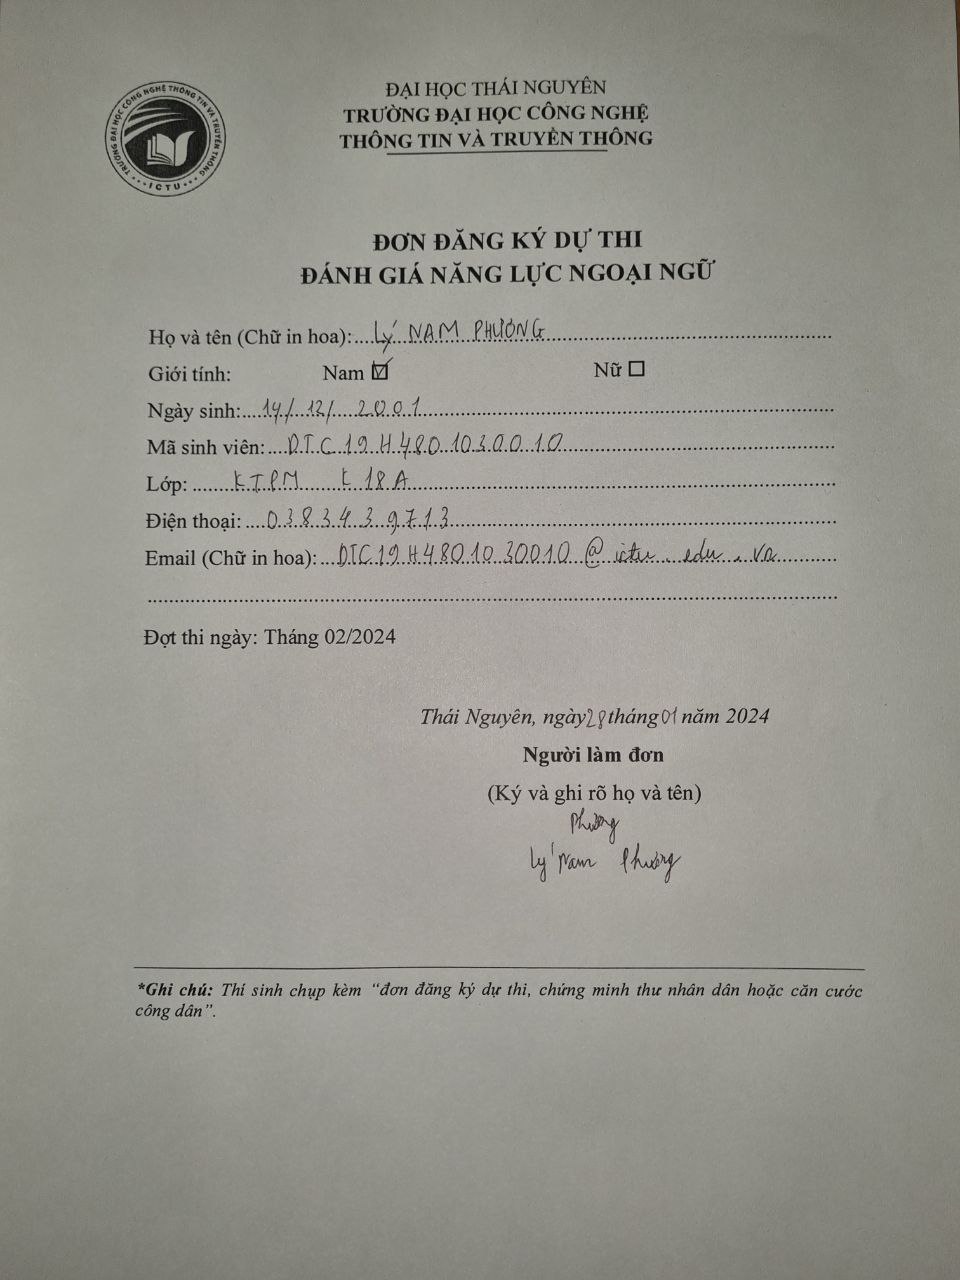 TRƯỜNG ĐẠI HỌC CÔNG NGHỆ THÔNG TIN VÀ TRUYỀN THÔNG
ICTU
ĐẠI HỌC THÁI NGUYÊN
TRƯỜNG ĐẠI HỌC CÔNG NGHỆ
THÔNG TIN VÀ TRUYỀN THÔNG
ĐƠN ĐĂNG KÝ DỰ THI
ĐÁNH GIÁ NĂNG LỰC NGOẠI NGỮ
Họ và tên (Chữ in hoa): LÝ NAM PHƯƠNG
Giới tính: Nam ☑ Nữ ☐
Ngày sinh: 14/12/2001
Mã sinh viên: DTC19H4801030010
Lớp: KTPM K18A
Điện thoại: 0383439713
Email (Chữ in hoa): DTC19H4801030010@ictu.edu.vn
Đợt thi ngày: Tháng 02/2024
Thái Nguyên, ngày 28 tháng 01 năm 2024
Người làm đơn
(Ký và ghi rõ họ và tên)
Phương
Lý Nam Phương
*Ghi chú: Thí sinh chụp kèm “đơn đăng ký dự thi, chứng minh thư nhân dân hoặc căn cước
công dân”.